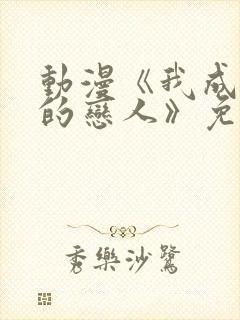 動漫《我成
的戀人》免
秀樂沙鷺